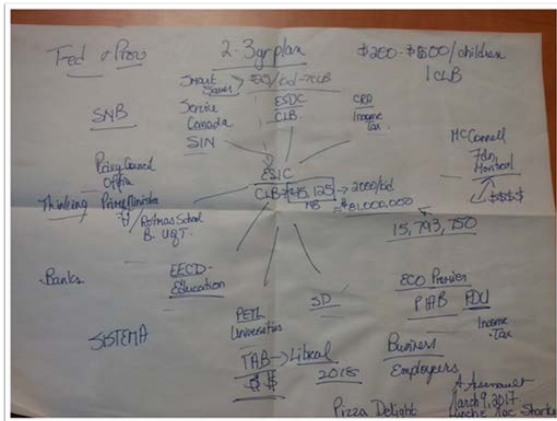 Fed & Prov
2-3yr plan
$200-$500/children
1 CLB
Smart
Saver
SNB
Service
Canada
SIN
ESDC
CLB
CRA
Income
Tax
McConnell
Fdn
Montreal
$$$$
Privy Council
Office
Thinking
Prime Minister
Rotman School
B. UofT.
ESIC
CLB
45,125
NB
2000/bd
15,793,750
Banks
EECD-
Education
SISTEMA
PETL
Universities
SD
ECO Premier
PDU
Income
Tax
TAB → Liberal
$ $
2018
Business
Employers
A. Arsenault
March 9, 2017
Pizza Delight